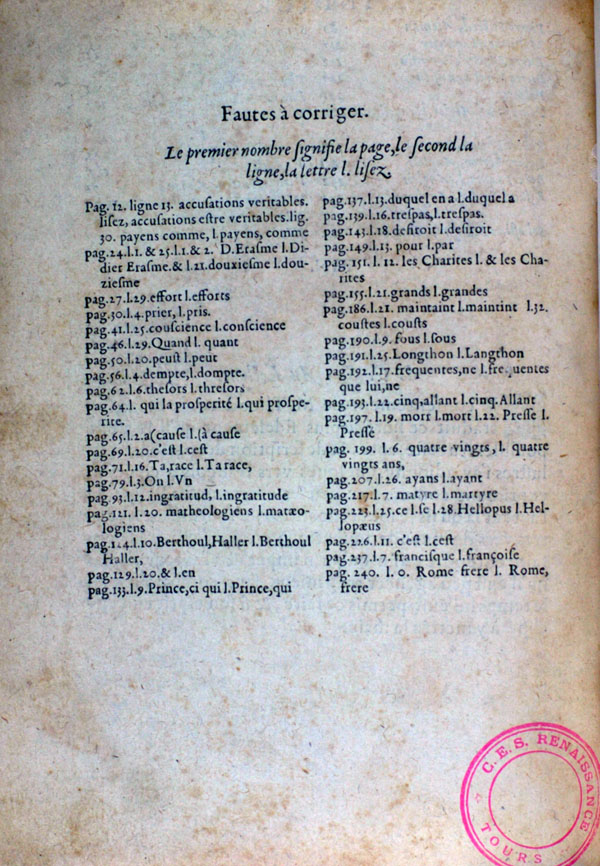 Fautes à corriger.
Le premier nombre ſignifie la page, le ſecond la
ligne, la lettre l. liſez.
Pag. 12. ligne 13. accusations veritables.
liſez, accusations eſtre veritables. lig.
30. payens comme, l. payens, comme
pag. 24. l. 1. & 25. l. 1. & 2. D. Eraſme l. Di-
dier Eraſme. & l. 21. douxieſme l. dou-
zieſme
pag. 27. l. 29. effort l. efforts
pag. 30. l. 4. prier, l. pris.
pag. 41. l. 25. couscience l. conscience
pag. 46. l. 29. Quand l. quant
pag. 50. l. 20. peuſt l. peut
pag. 56. l. 4. dempte, l. dompte.
pag. 62. l. 6. theſors l. threſors
pag. 64. l. qui la proſperité l. qui proſpe-
rite.
pag. 65. l. 2. a (cause l. (à cause
pag. 69. l. 20. c'eſt l. ceſt
pag. 71. l. 16. Ta, race l. Ta race,
pag. 79. l. 3. On l. Vn
pag. 93. l. 12. ingratitud, l. ingratitude
pag. 121. l. 20. matheologiens l. matæo-
logiens
pag. 124. l. 10. Berthoul, Haller l. Berthoul
Haller,
pag. 129. l. 20. & l. en
pag. 133. l. 9. Prince, ci qui l. Prince, qui
pag. 137. l. 13. duquel en a l. duquel a
pag. 139. l. 16. treſpas, l. treſpas.
pag. 143. l. 18. deſtroit l. deſiroit
pag. 149. l. 13. pour l. par
pag. 151. l. 12. les Charites l. & les Cha-
rites
pag. 155. l. 21. grands l. grandes
pag. 186. l. 21. maintaint l. maintint l. 32.
couſtes l. couſts
pag. 190. l. 9. fous l. ſous
pag. 191. l. 25. Longthon l. Langthon
pag. 192. l. 17. frequentes, ne l. frequentes
que lui, ne
pag. 193. l. 22. cinq, allant l. cinq. Allant
pag. 197. l. 19. morr l. mort l. 22. Preſſe l.
Preſſé
pag. 199. l. 6. quatre vingts, l. quatre
vingts ans,
pag. 207. l. 26. ayans l. ayant
pag. 217. l. 7. matyre l. martyre
pag. 223. l. 25. ce l. ſe l. 28. Hellopus l. Hel-
lopæus
pag. 226. l. 11. c'eſt l. ceſt
pag. 237. l. 7. francisque l. françoiſe
pag. 240. l. 0. Rome frere l. Rome,
frere
C. E. S. RENAISSANCE
TOURS